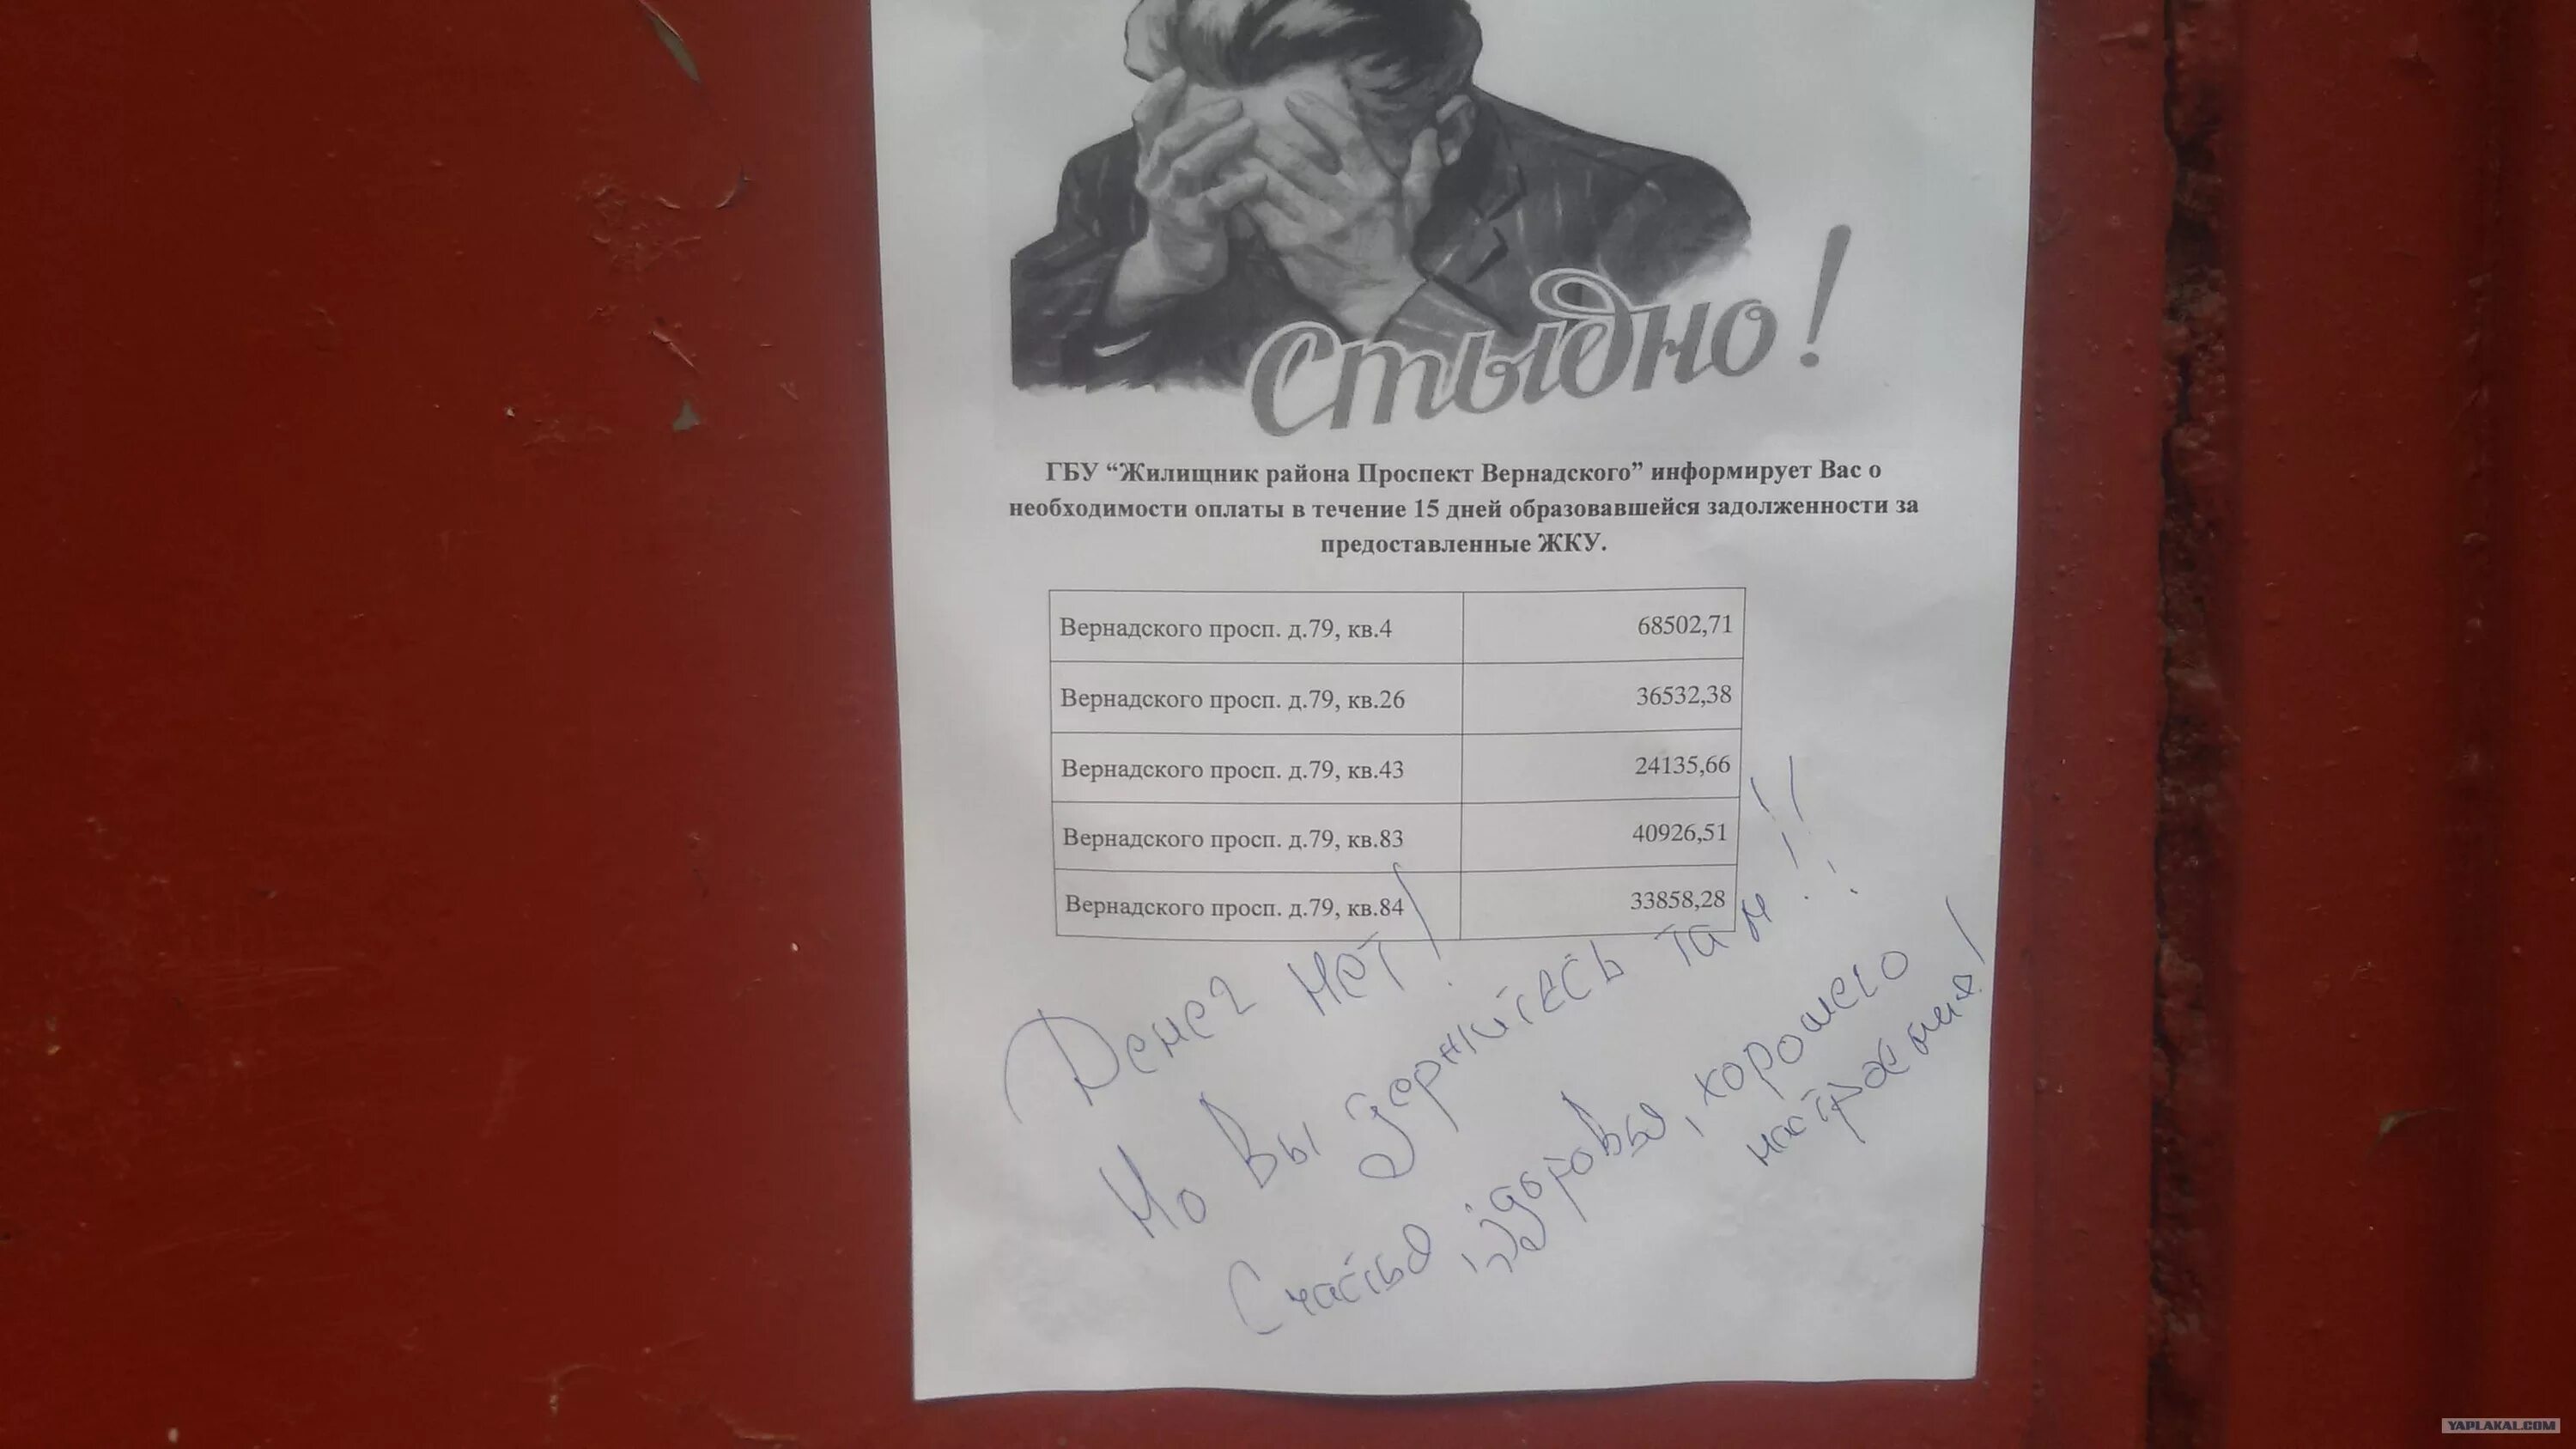 Стыдно!
ГБУ “Жилищник района Проспект Вернадского” информирует Вас о
необходимости оплаты в течение 15 дней образовавшейся задолженности за
предоставленные ЖКУ.
Вернадского просп. д.79, кв.4 68502,71
Вернадского просп. д.79, кв.26 36532,38
Вернадского просп. д.79, кв.43 24135,66
Вернадского просп. д.79, кв.83 40926,51
Вернадского просп. д.79, кв.84 33858,28
Денег нет!
Но Вы держитесь там!!!
Счастья, здоровья, хорошего
настроения!
YAPLAKAL.COM